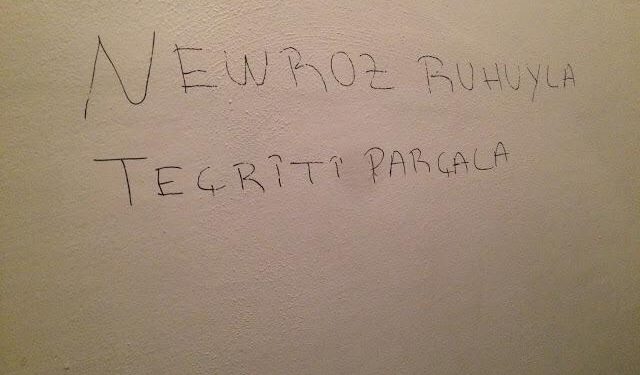 NEWROZ RUHUYLA
TEÇRİTİ PARÇALA